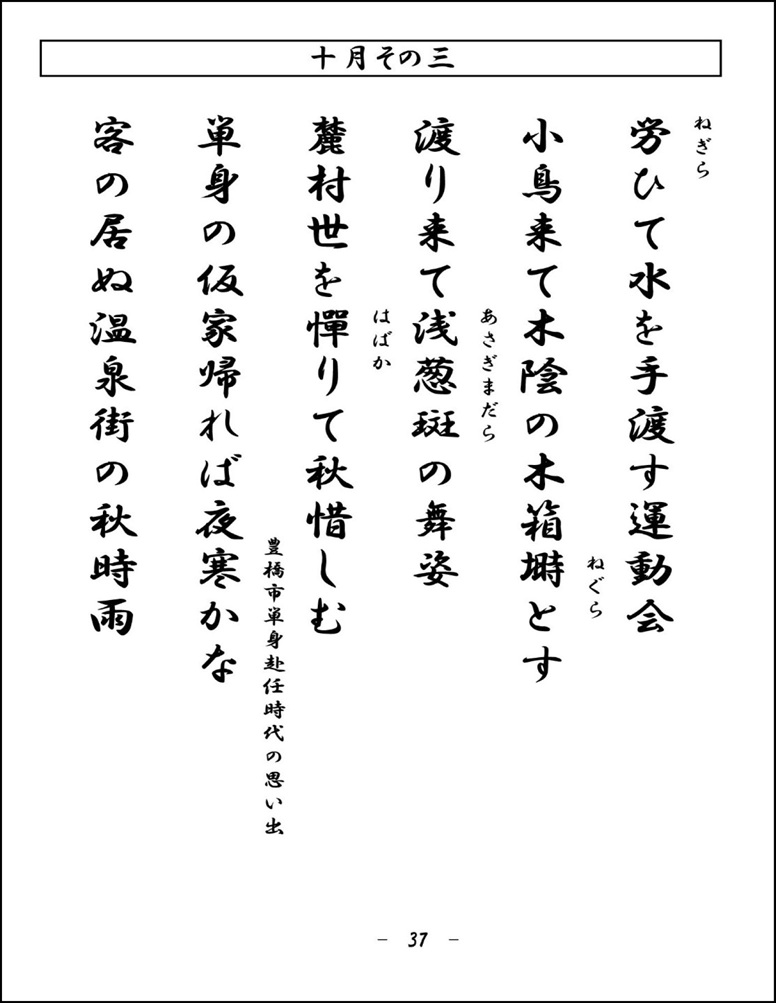 十月その三
ねぎら
労ひて水を手渡す運動会
ねぐら
小鳥来て木陰の木箱塒とす
あさぎまだら
渡り来て浅葱斑の舞姿
はばか
麓村世を憚りて秋惜しむ
豊橋市単身赴任時代の思い出
単身の仮家帰れば夜寒かな
客の居ぬ温泉街の秋時雨
- 37 -